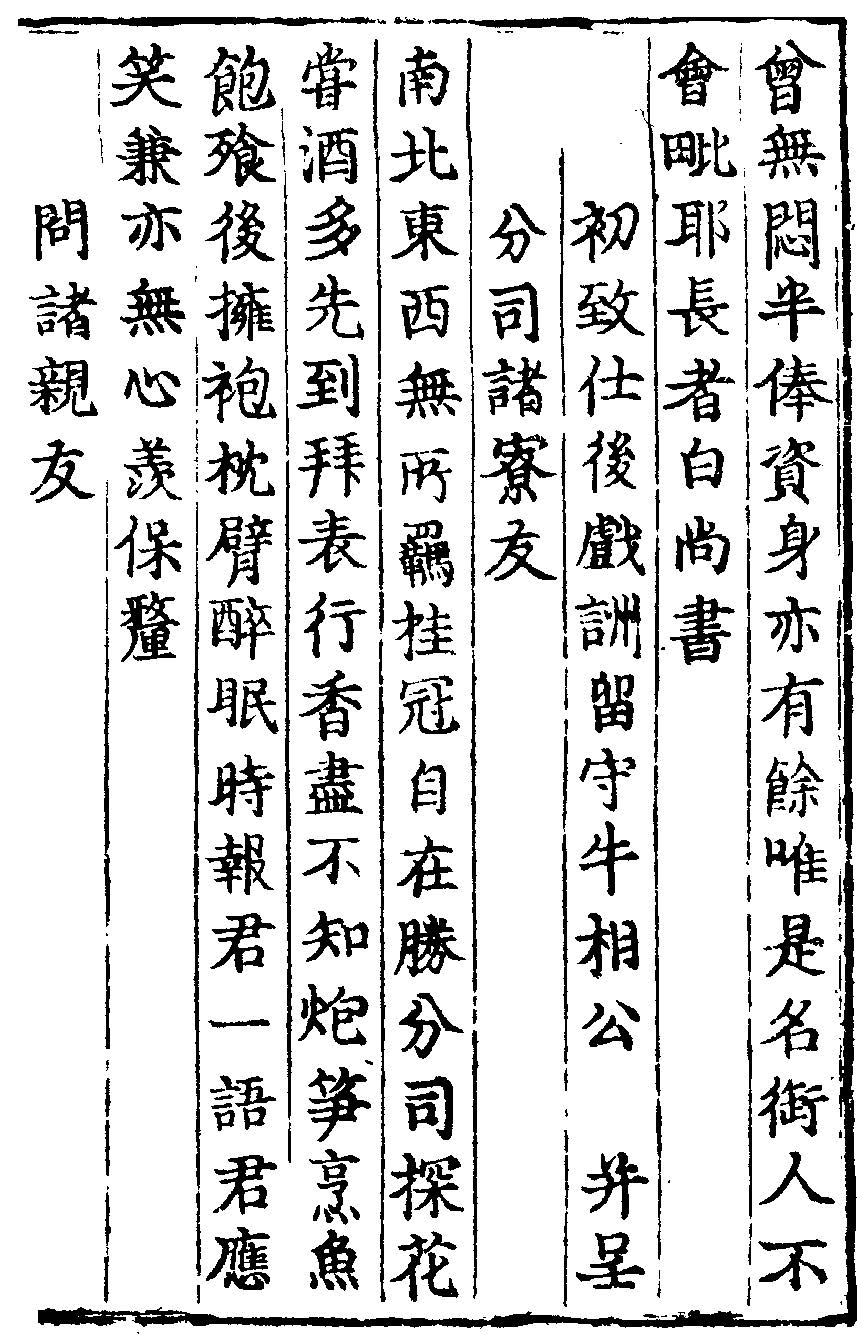 曾無悶半俸資身亦有餘唯是名銜人不
會毗耶長者白尚書
初致仕後戲詶留守牛相公　并呈
分司諸寮友
南北東西無所羈挂冠自在勝分司探花
甞酒多先到拜表行香盡不知炮笋烹魚
飽飡後擁袍枕臂醉眠時報君一語君應
笑兼亦無心羨保釐
問諸親友